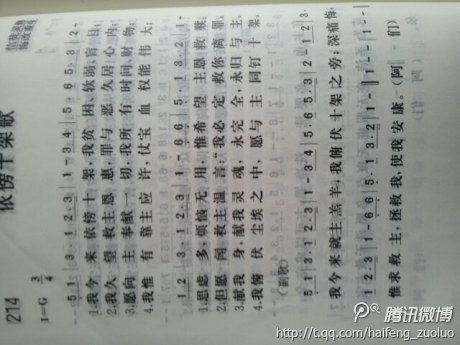 214
依傍十架歌
1=G 3/4
5 1|3· 1 2·3|1 - 3 4|5· 6 6 5|3· 2|
1.我今来依傍十架，我贫困、软弱、盲目；
2.我久望救主恩惠，罪与恶久居心内；
3.愿向主奉献一切，我所有时间、财物；
4.我惟有靠主应许，仗宝血权能伟大；
1 2·3|3· 1 2·3|1 - 6 6|5· 1 3· 2|1 - -
1.思虑多，烦恼无用，惟希望主恩救赎。
2.但愿闻救主温言：“我必定救你离罪。”
3.献我身，献我灵魂，永完全，永归与主。
4.我俯伏尘埃之中，愿与主同钉十架。
(副歌)
5 1|3· 1 2·3|1 - 3 4|5·6 6 5|3· 2 - 1 2|3·
我今来就主羔羊；我俯伏十架之旁；深痛悔
1 2·3|1 - 6 6|5· 1 3· 2|1 - ‖1 - |1 - ‖
惟求救主，拯救我，使我安康。（阿 们）
腾讯微博
http://t.qq.com/haifeng_zouluo